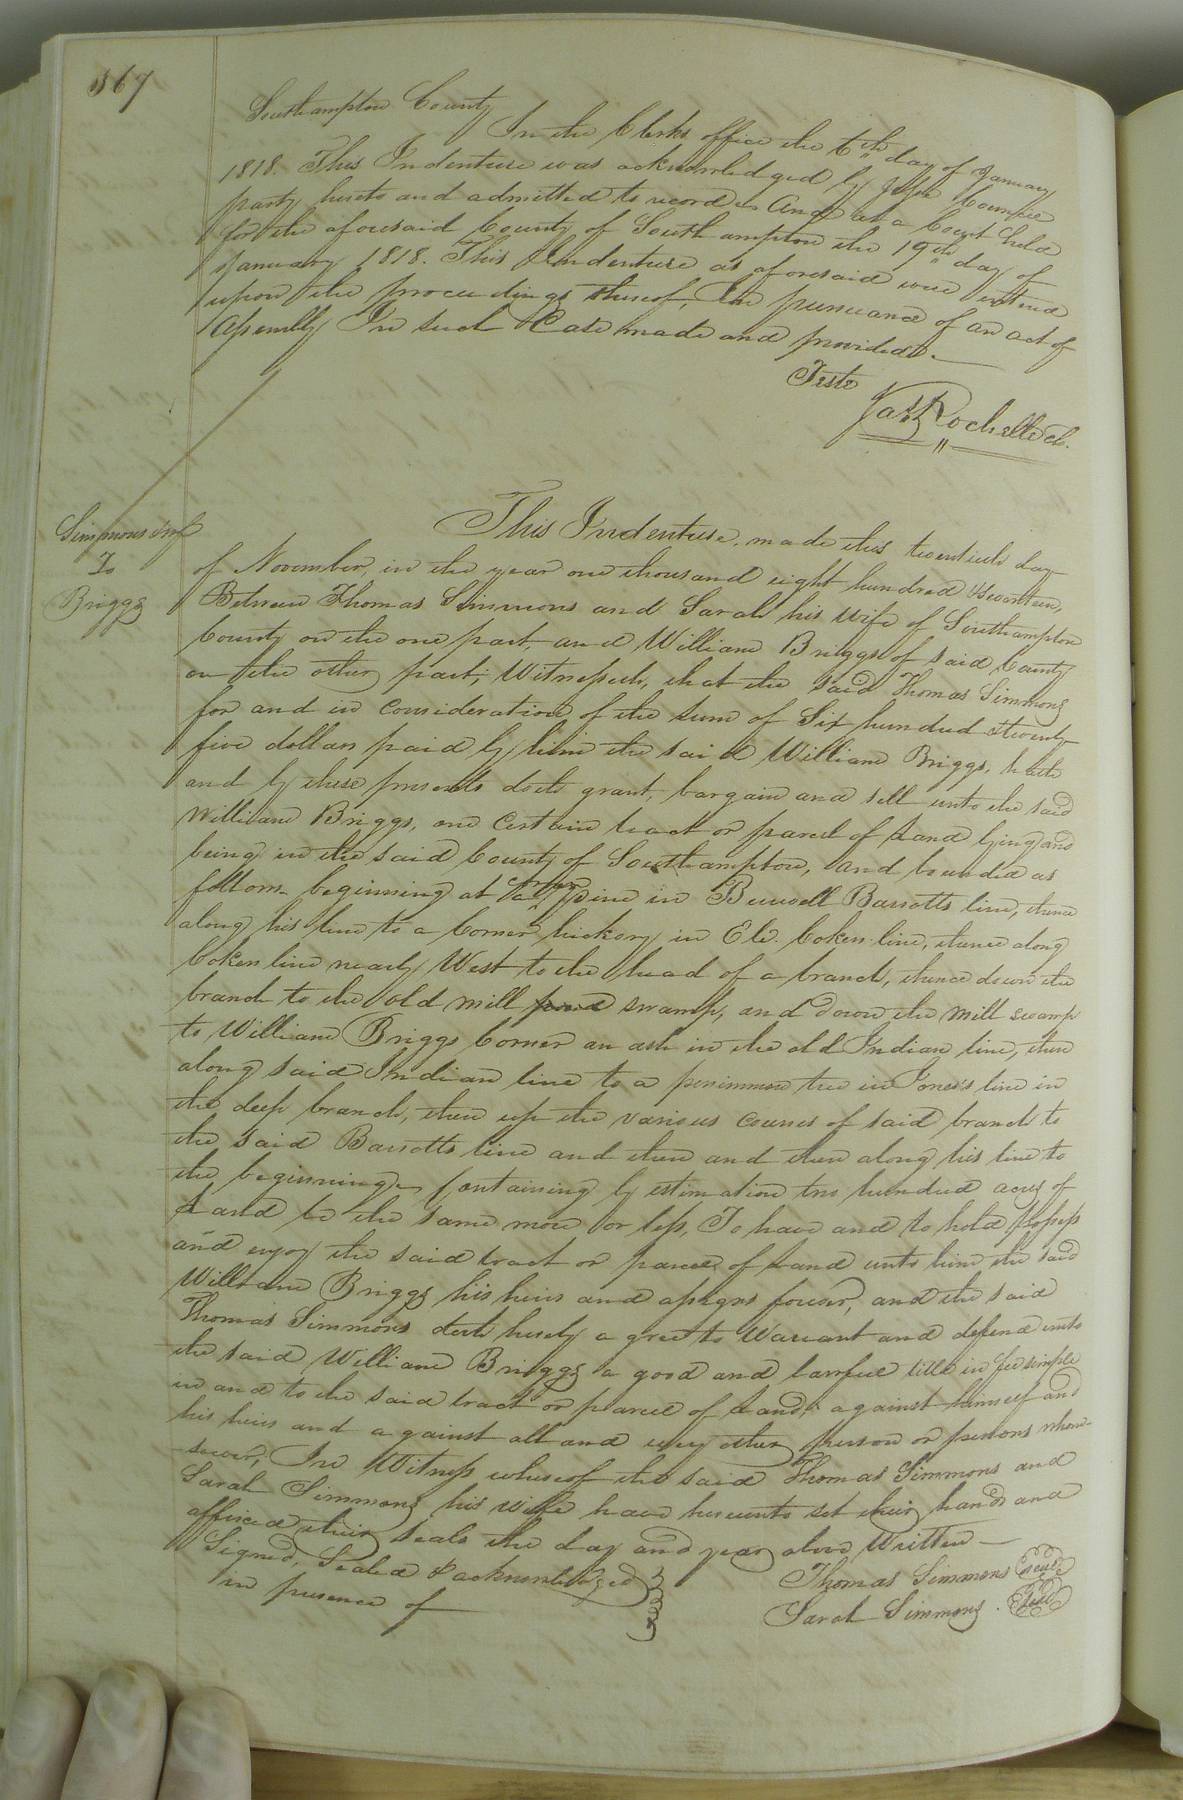 367
Southampton County
In the Clerks office the 6th day of January
1818. This Indenture was acknowledged by Jesse
party hereto and admitted to record And at a Court held
for the aforesaid County of Southampton the 19th day of
January 1818. This Indenture as aforesaid were entered
upon the proceedings thereof, In pursuance of an act of
Assembly In such Case made and provided.
Teste
Jas. Rochelle cl.
Simmons &wf
To
Briggs
This Indenture, made this twentieth day
of November, in the year one thousand eight hundred &seventeen,
Between Thomas Simmons and Sarah his wife of Southampton
County on the one part, and William Briggs of said County
on the other part; Witnesseth, that the said Thomas Simmons
for and in consideration of the sum of Six hundred &twenty
five dollars paid by him the said William Briggs, hath
and by these presents doth grant, bargain and sell unto the said
William Briggs, one certain tract or parcel of Land lying and
being in the said County of Southampton, and bounded as
follows beginning at a corner pine in Burwell Barrotts line, thence
along his line to a Corner hickory in Eld. Coken line, thence along
Coken line nearly West to the head of a branch, thence down the
branch to the old mill pond swamp, and down the mill swamp
to William Briggs Corner an ash in the old Indian line, then
along said Indian line to a persimmon tree in Jones's line in
the deep branch, then up the various courses of said branch to
the said Barrotts line and then and then along his line to
the beginning, Containing by estimation two hundred acres of
Land be the same more or less, To have and to hold possess
and enjoy the said tract or parcel of Land unto him the said
William Briggs his heirs and assigns forever, and the said
Thomas Simmons doth hereby agree to Warrant and defend unto
the said William Briggs a good and lawful title in fee simple
in and to the said tract or parcel of Land, against himself and
his heirs and against all and every other person or persons whom-
soever, In Witness whereof the said Thomas Simmons and
Sarah Simmons his wife have hereunto set their hands and
affixed their seals the day and year above Written
Signed, Sealed & acknowledged
in presence of
Thomas Simmons seal
Sarah Simmons. seal